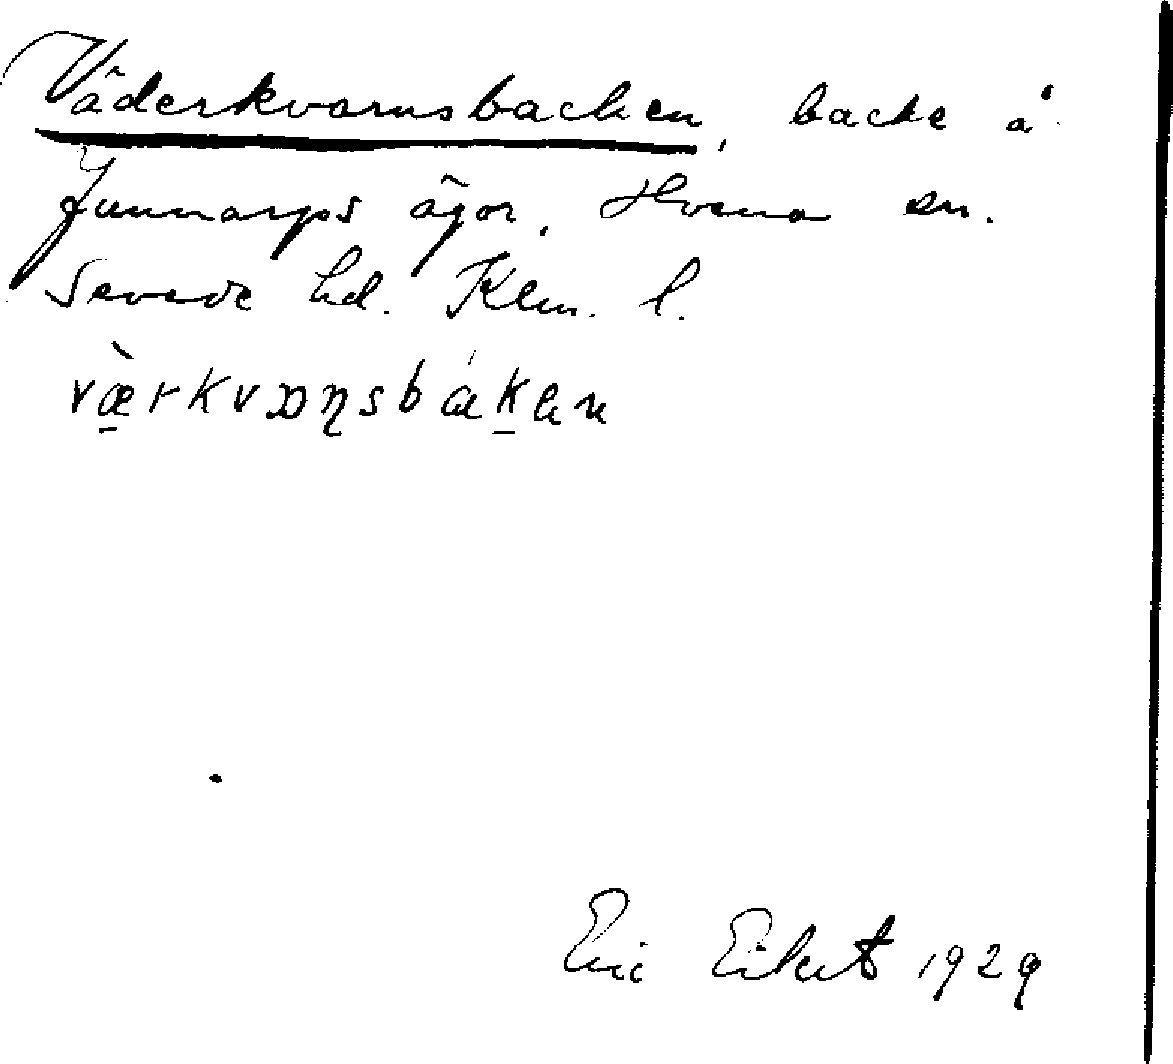 Väderkvarnsbacken, backe å
Junnarps ägor, Hvena sn.
Sevede hd. Klm. l.
væ̀rkvɒɳsbákən
Eric Eckert 1929